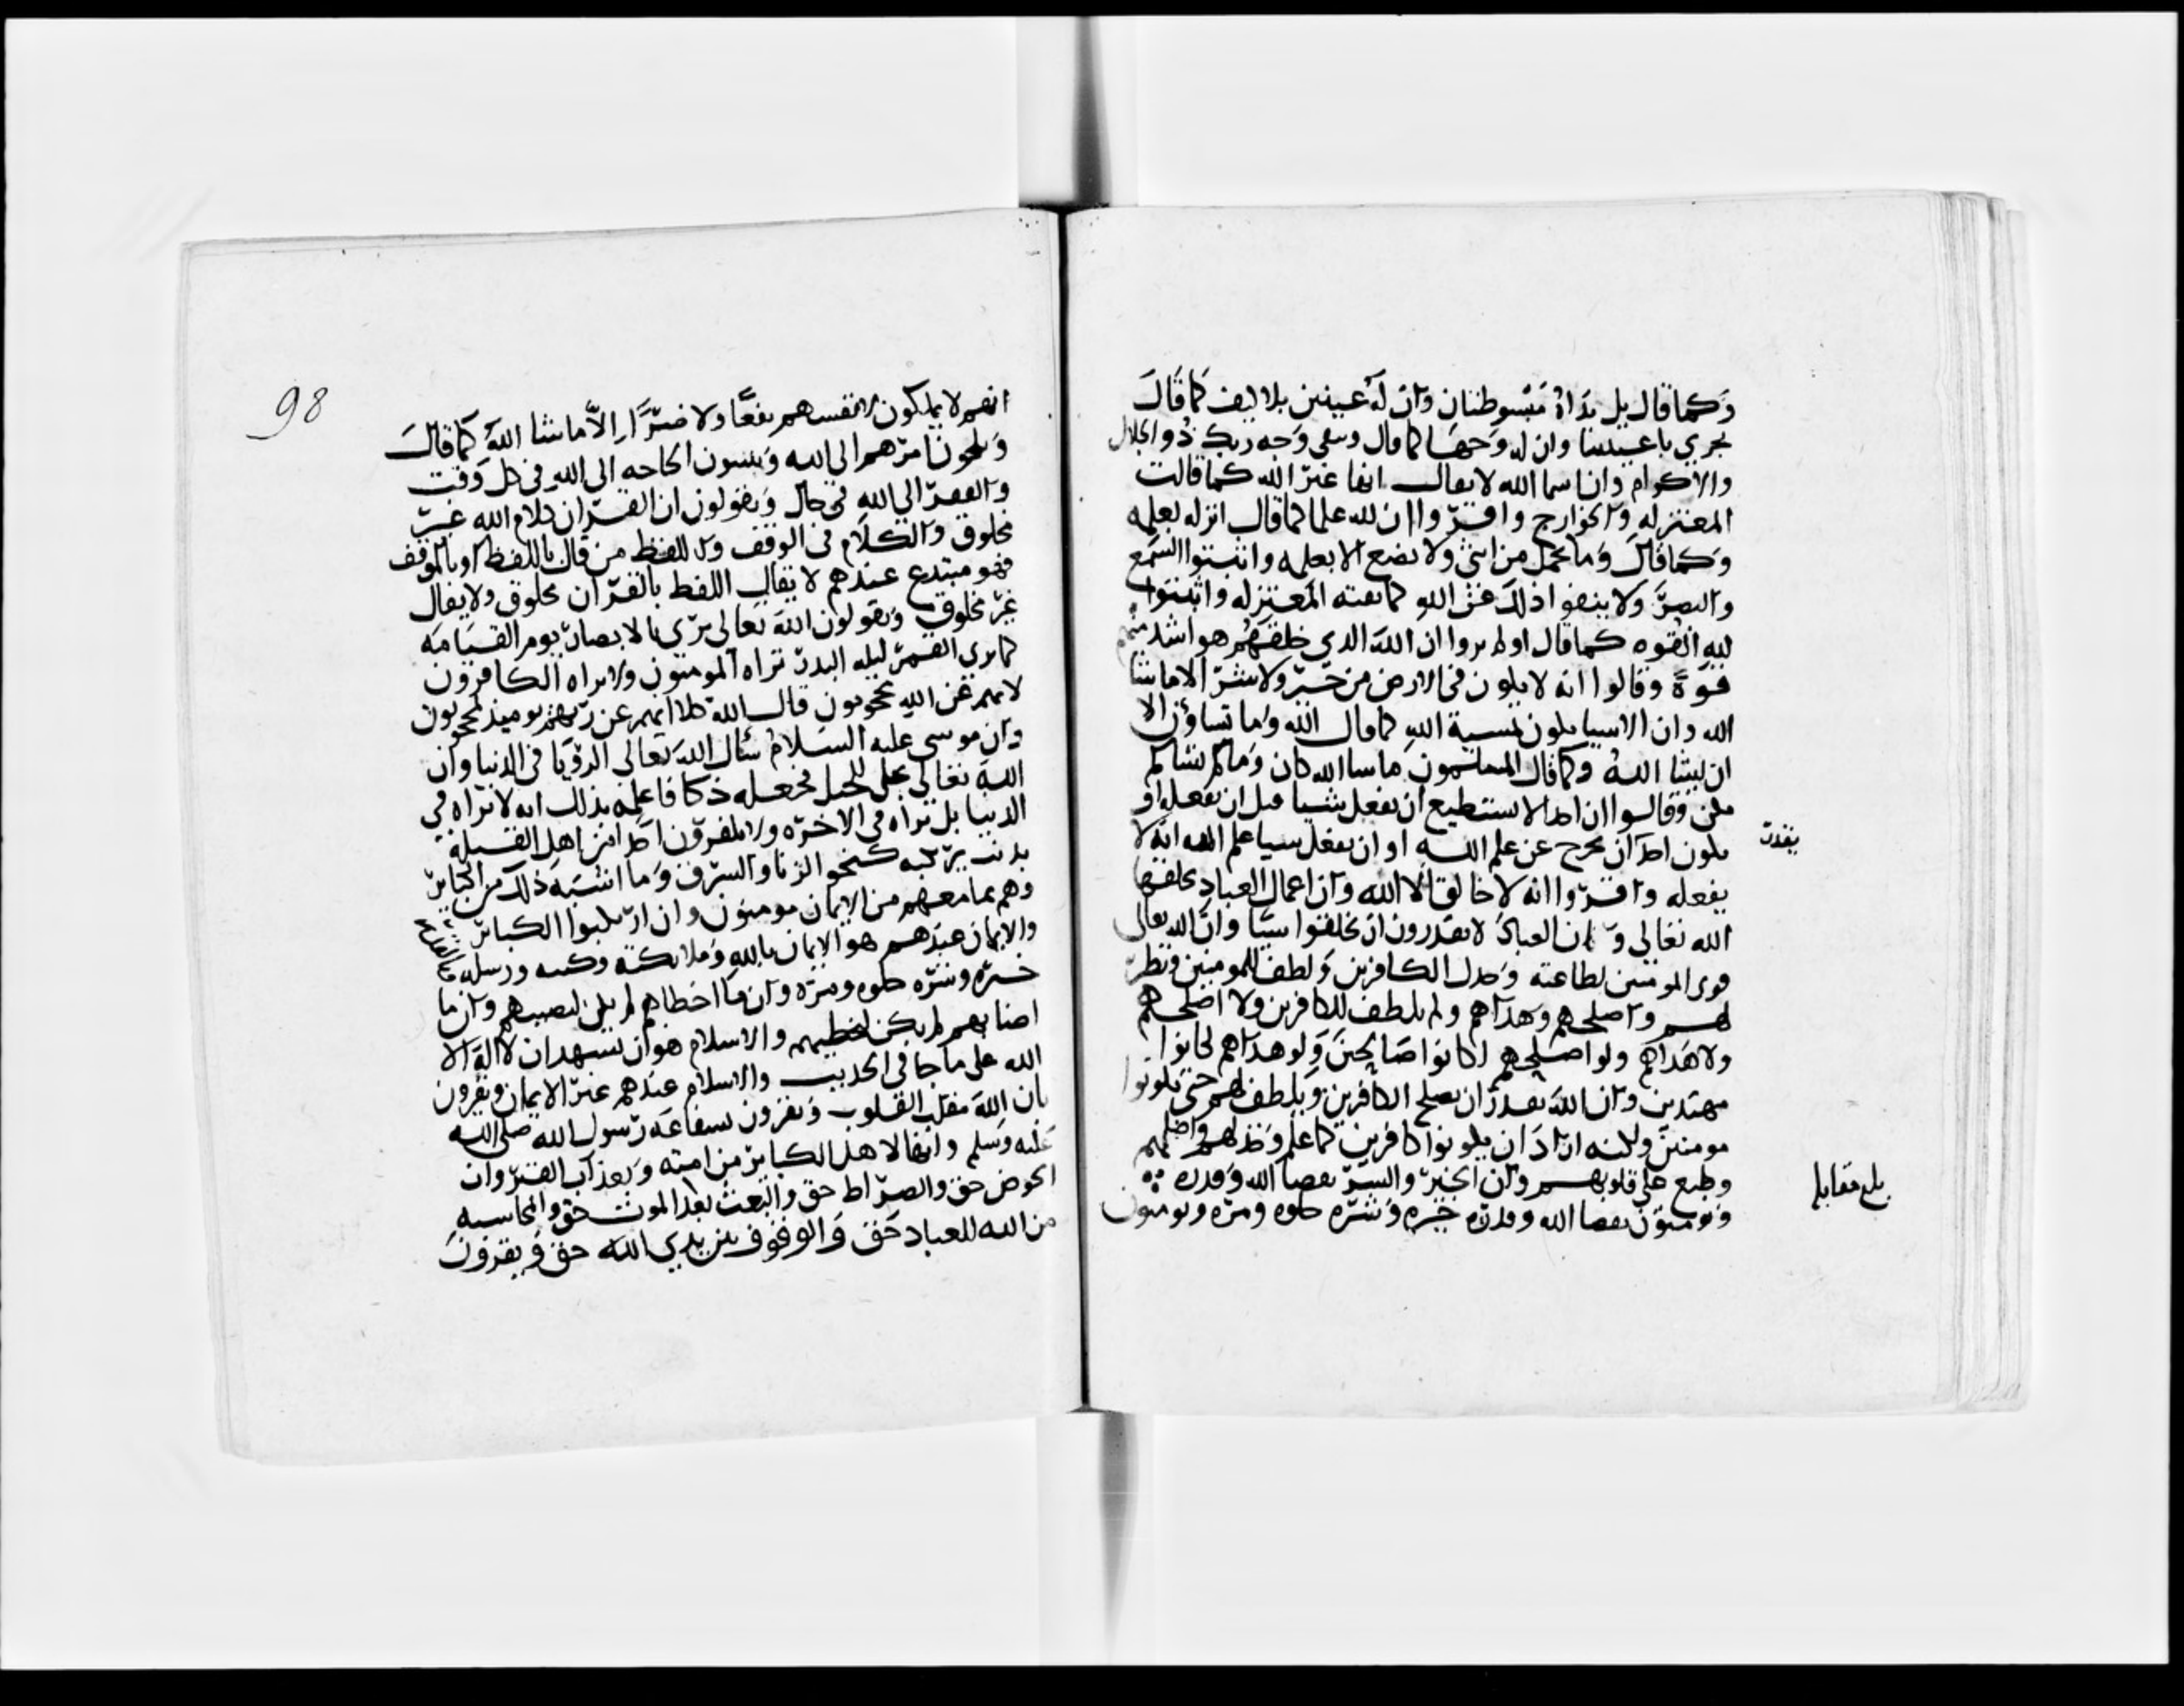 وكما قال بل يداه مبسوطتان وان له عينين بلا كيف كما قال
تجري باعيننا وان له وجها كما قال ويبقى وجه ربك ذو الجلال
والاكرام وان اسما الله لا يقال انها غير الله كما قالت
المعتزله والخوارج واقروا ان لله علما كما قال انزله بعلمه
وكما قال وما تحمل من انثى ولا تضع الا بعلمه واثبتوا السمع
والبصر ولا ينفوا ذلك عن الله كما نفته المعتزله واثبتوا
لله القوه كما قال اولم يروا ان الله الذي خلقهم هو اشد منهم
قوة وقالوا انه لا يكون في الارض من خير ولا شر الا ما شا
الله وان الاشيا تكون بمشية الله كما قال الله وما تشاؤن الا
ان يشا الله وكما قال المسلمون ما شا الله كان وما لم يشا لم
يكن وقالوا ان احدا لا يستطيع ان يفعل شيا قبل ان يفعله او
يكون احد ان يخرج عن علم الله او ان يفعل شيا علم الله انه لا
يقدر
يفعله واقروا انه لا خالق الا الله وان اعمال العباد يخلقها
الله تعالى وان العباد لا يقدرون ان يخلقوا شيا وان الله تعالى
قوى المومنين لطاعته وخذل الكافرين ولطف للمومنين ونظر
لهم واصلحهم وهداهم ولم يلطف للكافرين ولا اصلحهم
ولا هداهم ولو اصلحهم لكانوا صالحين ولو هداهم لكانوا
مهتدين وان الله يقدر ان يصلح الكافرين ويلطف لهم حتى يكونوا
مومنين ولكنه اراد ان يكونوا كافرين كما علم وخذلهم واضلهم
وطبع على قلوبهم وان الخير والشر بقضا الله وقدره
ويومنون بقضا الله وقدره خيره وشره حلوه ومره ويومنون
بلغ مقابله
98
انهم لا يملكون لانفسهم نفعا ولا ضرا الا ما شا الله كما قال
ويلجون امرهم الى الله ويثبتون الحاجه الى الله في كل وقت
والفقر الى الله في حال ويقولون ان القران كلام الله غير
مخلوق والكلام في الوقف واللفظ من قال باللفظ او بالوقف
فهو مبتدع عندهم لا يقال اللفظ بالقران مخلوق ولا يقال
غير مخلوق ويقولون الله تعالى يرى بالابصار يوم القيامه
كما يرى القمر ليله البدر تراه المومنون ولا يراه الكافرون
لانهم عن الله محجوبون قال الله كلا انهم عن ربهم يوميذ لمحجوبون
وان موسى عليه السلام سال الله تعالى الرؤيا في الدنيا وان
الله تعالى تجلى للجبل فجعله دكا فاعلمه بذلك انه لا تراه في
الدنيا بل تراه في الاخره ولا يكفرون احدا من اهل القبله
بذنب يرتكبه كنحو الزنا والسرق وما اشبه ذلك من الكباير
وهم بما معهم من الايمان مومنون وان ارتكبوا الكبائر
والايمان عندهم هو الايمان بالله وملائكته وكتبه ورسله
خيره وشره حلوه ومره وان ما اخطاهم لم يكن ليصيبهم وان ما
اصابهم لم يكن ليخطيهم والاسلام هو ان يشهد ان لا اله الا
الله على ما جا في الحديث والاسلام عندهم غير الايمان ويقرون
بان الله مقلب القلوب ويقرون بشفاعه رسول الله صلى الله
عليه وسلم وانها لاهل الكباير من امته وبعذاب القبر وان
الحوض حق والصراط حق والبعث بعد الموت حق والمحاسبه
من الله للعباد حق والوقوف بين يدي الله حق ويقرون